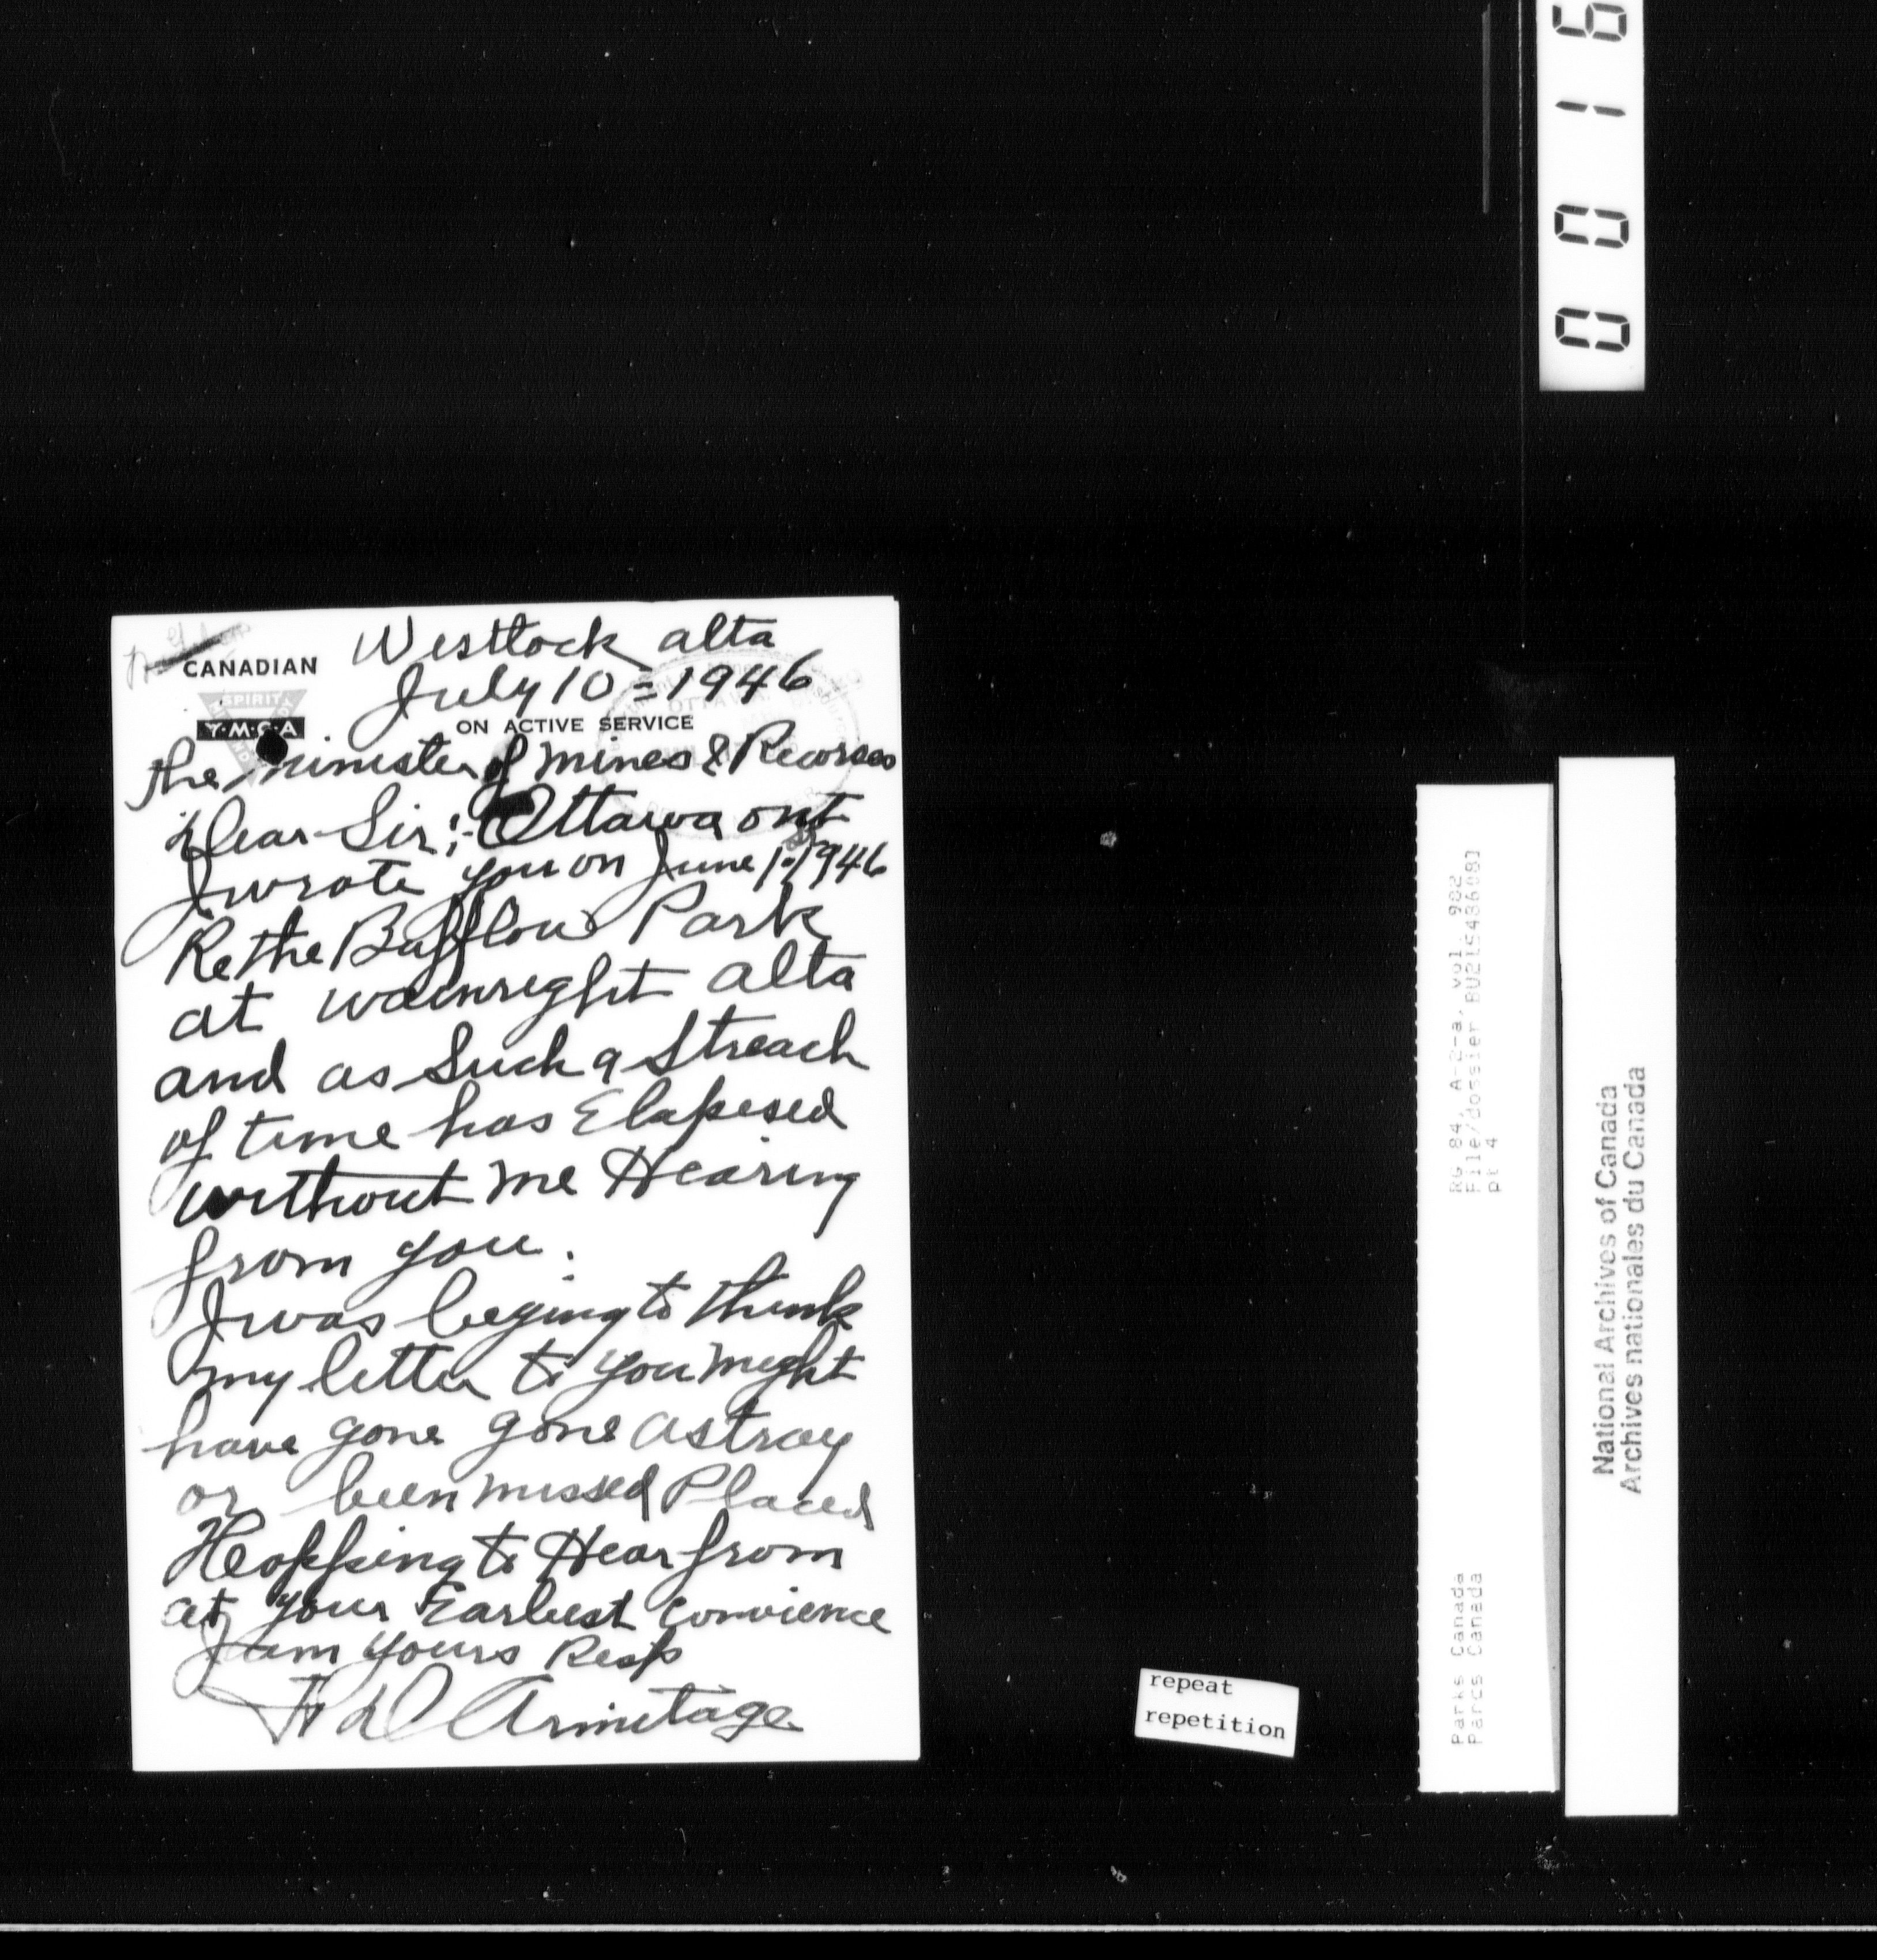 Westlock alta
CANADIAN
July 10=1946
SPIRIT
Y·M·C·A
ON ACTIVE SERVICE
OTTAWA
the minister of mines & Recorses
Dear Sir;- Ottawa ont
I wrote you on June 1-1946
Re the Bufflow Park
at wainright alta
and as Such a Streach
of time has Elapesed
without me Hearing
from you.
I was beging to think
my letter to you might
have gone gone astray
or been missed Placed
Heopping to Hear from
at your Earliest convience
I am yours Resp
Armitage
0016
RG 84, A-2-a, vol. 982
File/dossier BU215486081
pt 4
Parks Canada
Parcs Canada
National Archives of Canada
Archives nationales du Canada
repeat
repetition